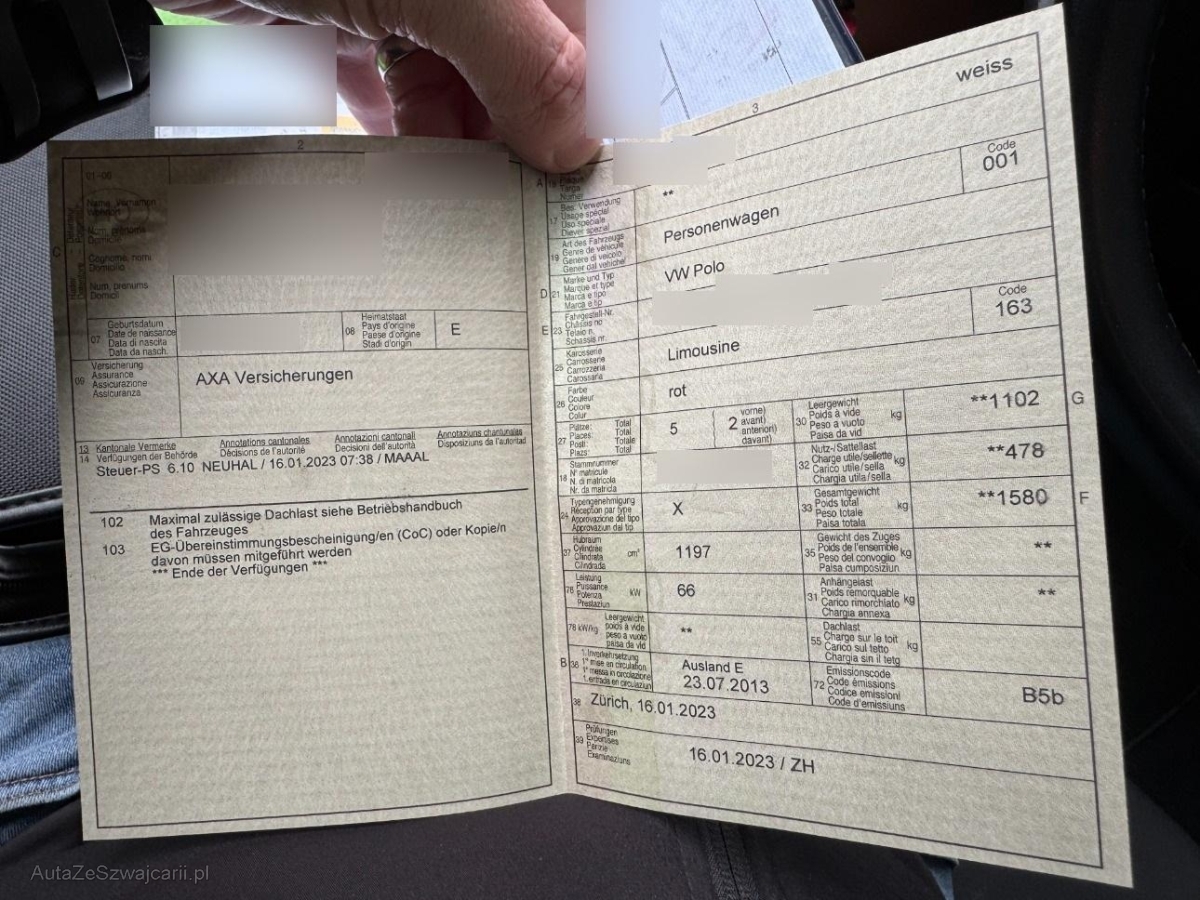 2
01-06
Name, Vornamen
Wohnort
Nom, prénoms
Domicile
Cognome, nomi
Domicilio
Num, prenums
Domicil
C
07
Geburtsdatum
Date de naissance
Data di nascita
Data da nasch.
08
Heimatstaat
Pays d'origine
Paese d'origine
Stadi d'origin
E
09
Versicherung
Assurance
Assicurazione
Assicuranza
AXA Versicherungen
13 Kantonale Vermerke
14 Verfügungen der Behörde
Annotations cantonales
Décisions de l'autorité
Annotazioni cantonali
Decisioni dell'autorità
Annotaziuns chantunalas
Disposiziuns da l'autoritad
Steuer-PS 6.10 NEUHAL / 16.01.2023 07:38 / MAAAL
102 Maximal zulässige Dachlast siehe Betriebshandbuch
des Fahrzeuges
103 EG-Übereinstimmungsbescheinigung/en (CoC) oder Kopie/n
davon müssen mitgeführt werden
*** Ende der Verfügungen ***
3
weiss
A
15
Targa
Numer
17
Bes. Verwendung
Usage spécial
Uso speciale
Diever spezial
**
19
Art des Fahrzeugs
Genre de véhicule
Genere di veicolo
Gener dal vehichel
Personenwagen
Code
001
D
21
Marke und Typ
Marque et type
Marca e tipo
Marca e tip
VW Polo
E
23
Fahrgestell-Nr.
Châssis no
Telaio n.
Schassis nr.
25
Karosserie
Carrosserie
Carrozzeria
Carossaria
Limousine
Code
163
26
Farbe
Couleur
Colore
Colur
rot
27
Plätze: Total
Places: Total
Posti: Totale
Plazs: Total
5
2
vorne)
avant)
anteriori)
davant)
30
Leergewicht
Poids à vide
Peso a vuoto
Paisa da vid
kg
**1102
G
18
Stammnummer
N° matricule
N. di matricola
Nr. da matricla
32
Nutz-/Sattellast
Charge utile/sellette
Carico utile/sella
Chargia utila/sella
kg
**478
24
Typengenehmigung
Réception par type
Approvazione del tipo
Approvaziun dal tip
X
33
Gesamtgewicht
Poids total
Peso totale
Paisa totala
kg
**1580
F
37
Hubraum
Cylindrée
Cilindrata
Cilindrada
cm³
1197
35
Gewicht des Zuges
Poids de l'ensemble
Peso del convoglio
Paisa cumposiziun
kg
**
76
Leistung
Puissance
Potenza
Prestaziun
kW
66
31
Anhängelast
Poids remorquable
Carico rimorchiato
Chargia annexa
kg
**
78 kW/kg
Leergewicht
poids à vide
peso a vuoto
paisa da vid
**
55
Dachlast
Charge sur le toit
Carico sul tetto
Chargia sin il tetg
kg
B
36
1. Inverkehrsetzung
1re mise en circulation
1a messa in circolazione
1. entrada en circulaziun
Ausland E
23.07.2013
72
Emissionscode
Code émissions
Codice emissioni
Code d'emissiuns
B5b
38
Zürich, 16.01.2023
39
Prüfungen
Expertises
Perizie
Examinaziuns
16.01.2023 / ZH
AutaZeSzwajcarii.pl